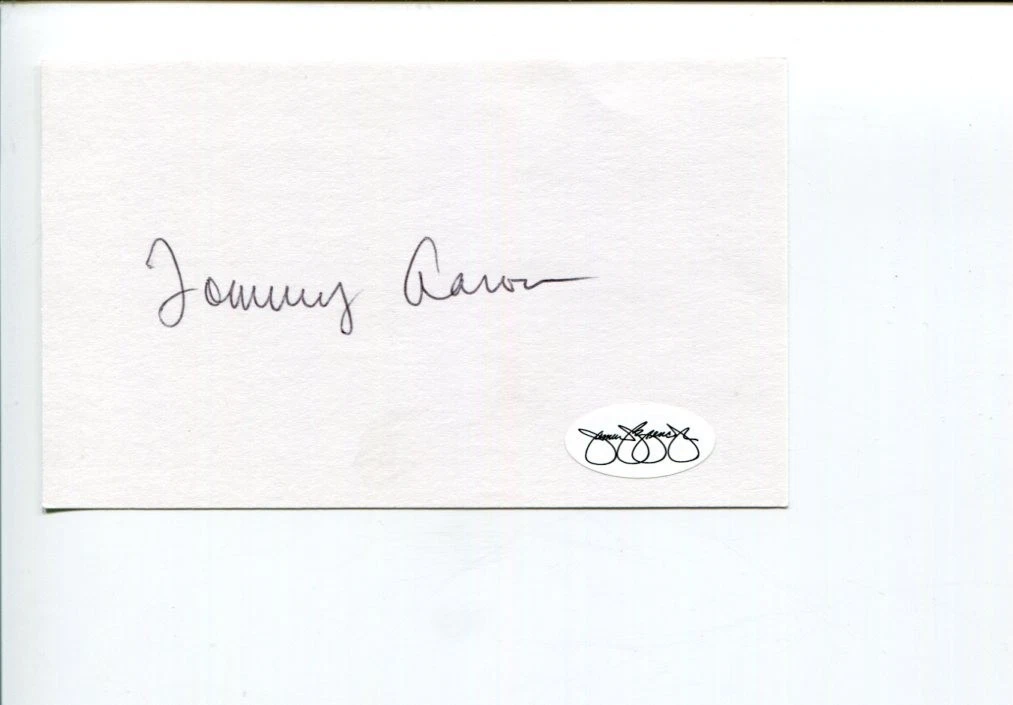 Tommy Aaron
James Spence Jr